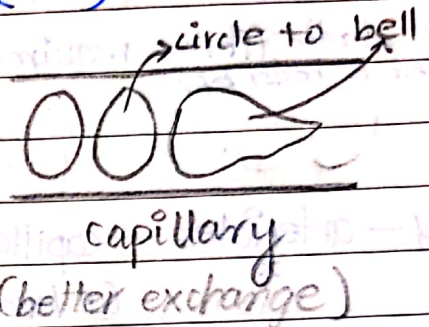 circle to bell
capillary
(better exchange)